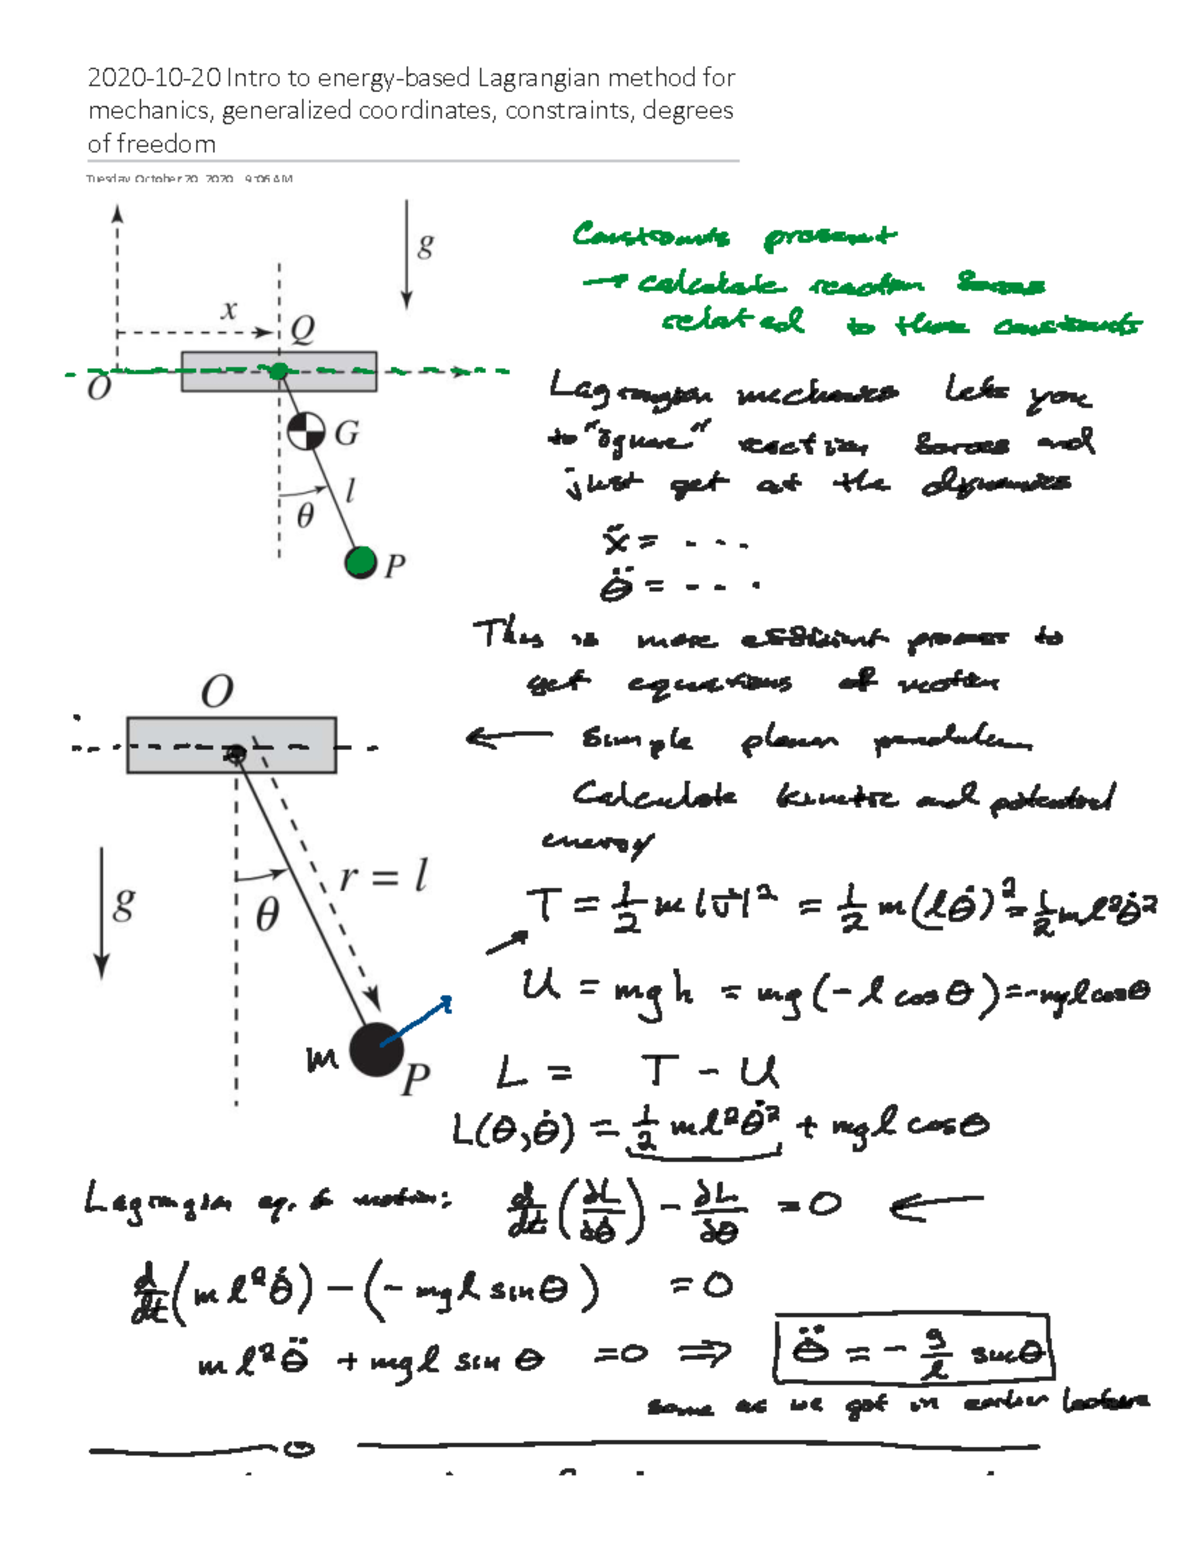 2020-10-20 Intro to energy-based Lagrangian method for
mechanics, generalized coordinates, constraints, degrees
of freedom
Tuesday, October 20, 2020 9:06 AM
g
x
Q
O
G
l
θ
P
Constraints present
→ calculate reaction forces
related to these constraints
Lagrangian mechanics lets you
to "ignore" reaction forces and
just get at the dynamics
ẍ = - - - .
θ̈ = - - - .
This is more efficient process to
get equations of motion
← Simple planar pendulum
Calculate kinetic and potential
energy
O
r = l
g
θ
m
P
T = 1/2 m |v⃗|² = 1/2 m (lθ̇)² = 1/2 ml²θ̇²
U = mgh = mg(-l cosθ) = -mgl cosθ
L = T - U
L(θ,θ̇) = 1/2 ml²θ̇² + mgl cosθ
Lagrangian eq. of motion: d/dt (∂L/∂θ̇) - ∂L/∂θ = 0 ←
d/dt (ml²θ̇) - (-mgl sinθ) = 0
ml²θ̈ + mgl sin θ = 0 ⇒ θ̈ = - g/l sinθ
same as we got in earlier lecture